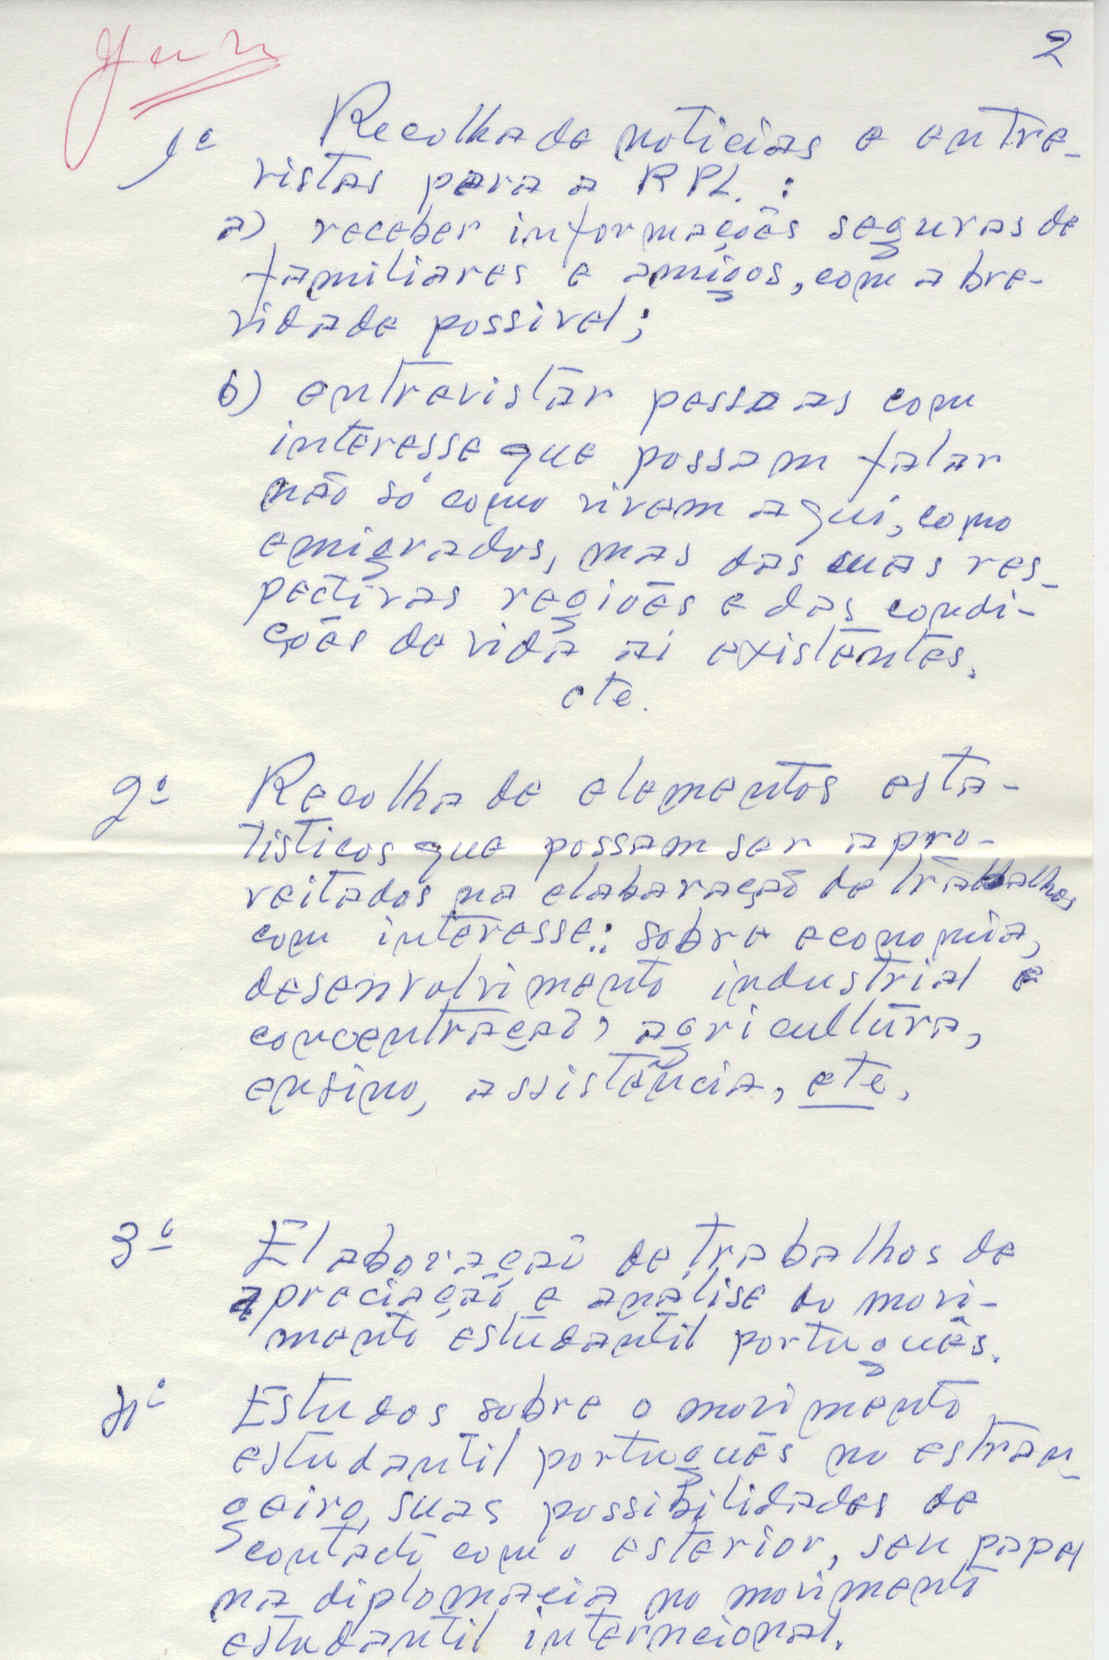 2
1º Recolha de noticias e entre-
vistas para a RPL. :
a) receber informações seguras de
familiares e amigos, com a bre-
vidade possivel;
b) entrevistar pessoas com
interesse que possam falar
não só como vivem aqui, como
emigrados, mas das suas res-
pectivas regiões e das condi-
ções de vida ai existentes.
etc.
2º Recolha de elementos esta-
tisticos que possam ser apro-
veitados na elabaração de trabalhos
com interesse: sobre economia,
desenvolvimento industrial e
concentração, agricultura,
ensino, assistência, etc.
3º Elaboração de trabalhos de
apreciação e análise do movi-
mento estudantil português.
4º Estudos sobre o movimento
estudantil português no estran-
geiro, suas possibilidades de
contacto com o esterior, seu papel
na diplomacia no movimento
estudantil interncional.